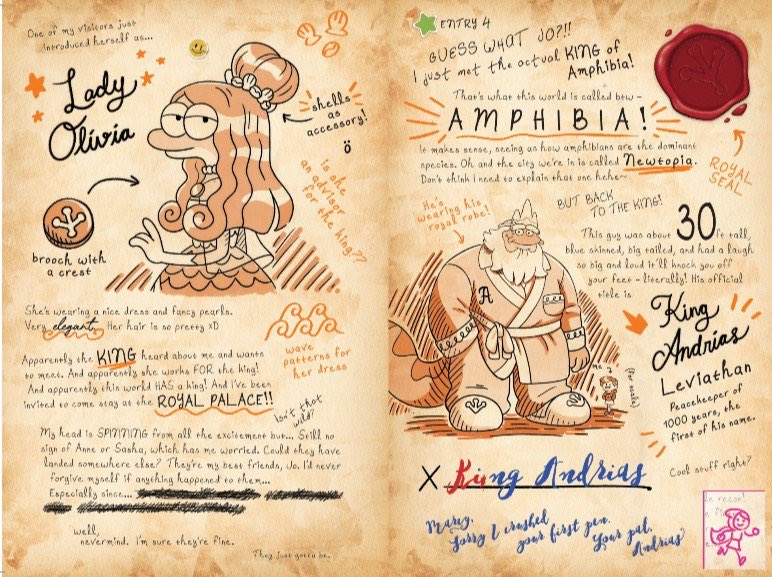 One of my visitors just
introduced herself as...
Lady
Olivia
shells
as
accessory!
ö
is she
an advisor
for the
king??
brooch with
a crest
She's wearing a nice dress and fancy pearls.
Very elegant. Her hair is so pretty XD
wave
patterns for
her dress
Apparently the KING heard about me and wants
to meet. And apparently she works FOR the king!
And apparently this world HAS a king! And I've been
invited to come stay at the ROYAL PALACE!!
Isn't that
wild?
My head is SPINNING from all the excitement but... Still no
sign of Anne or Sasha, which has me worried. Could they have
landed somewhere else? They're my best friends, Jo. I'd never
forgive myself if anything happened to them...
Especially since...
well,
nevermind. I'm sure they're fine.
They just gotta be.
ENTRY 4
GUESS WHAT JO?!!
I just met the actual KING of
Amphibia!
That's what this world is called btw -
AMPHIBIA!
It makes sense, seeing as how amphibians are the dominant
species. Oh and the city we're in is called Newtopia.
Don't think I need to explain that one hehe~
ROYAL
SEAL
He's
wearing his
royal robe!
BUT BACK
TO THE KING!
This guy was about 30 ft tall,
blue skinned, big tailed, and had a laugh
so big and loud it'll knock you off
your feet - literally! His official
title is
King
Andrias
Leviathan
Peacekeeper of
1000 years, the
first of his name.
A
me
(for scale)
Cool stuff right?
X King Andrias
Marcy,
Sorry I crushed
your first pen.
Your pal,
Andrias